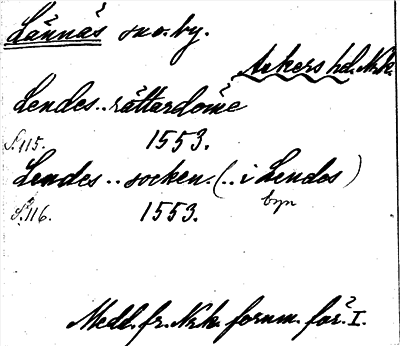 Lännäs sn o. by.
Askers hd. Nrk.
Lendes.. rättardöme
S. 115. 1553.
Lendes.. socken. (.. i Lendes)
byn
S. 116. 1553.
Medd. fr. Nrk. fornm. för. I.